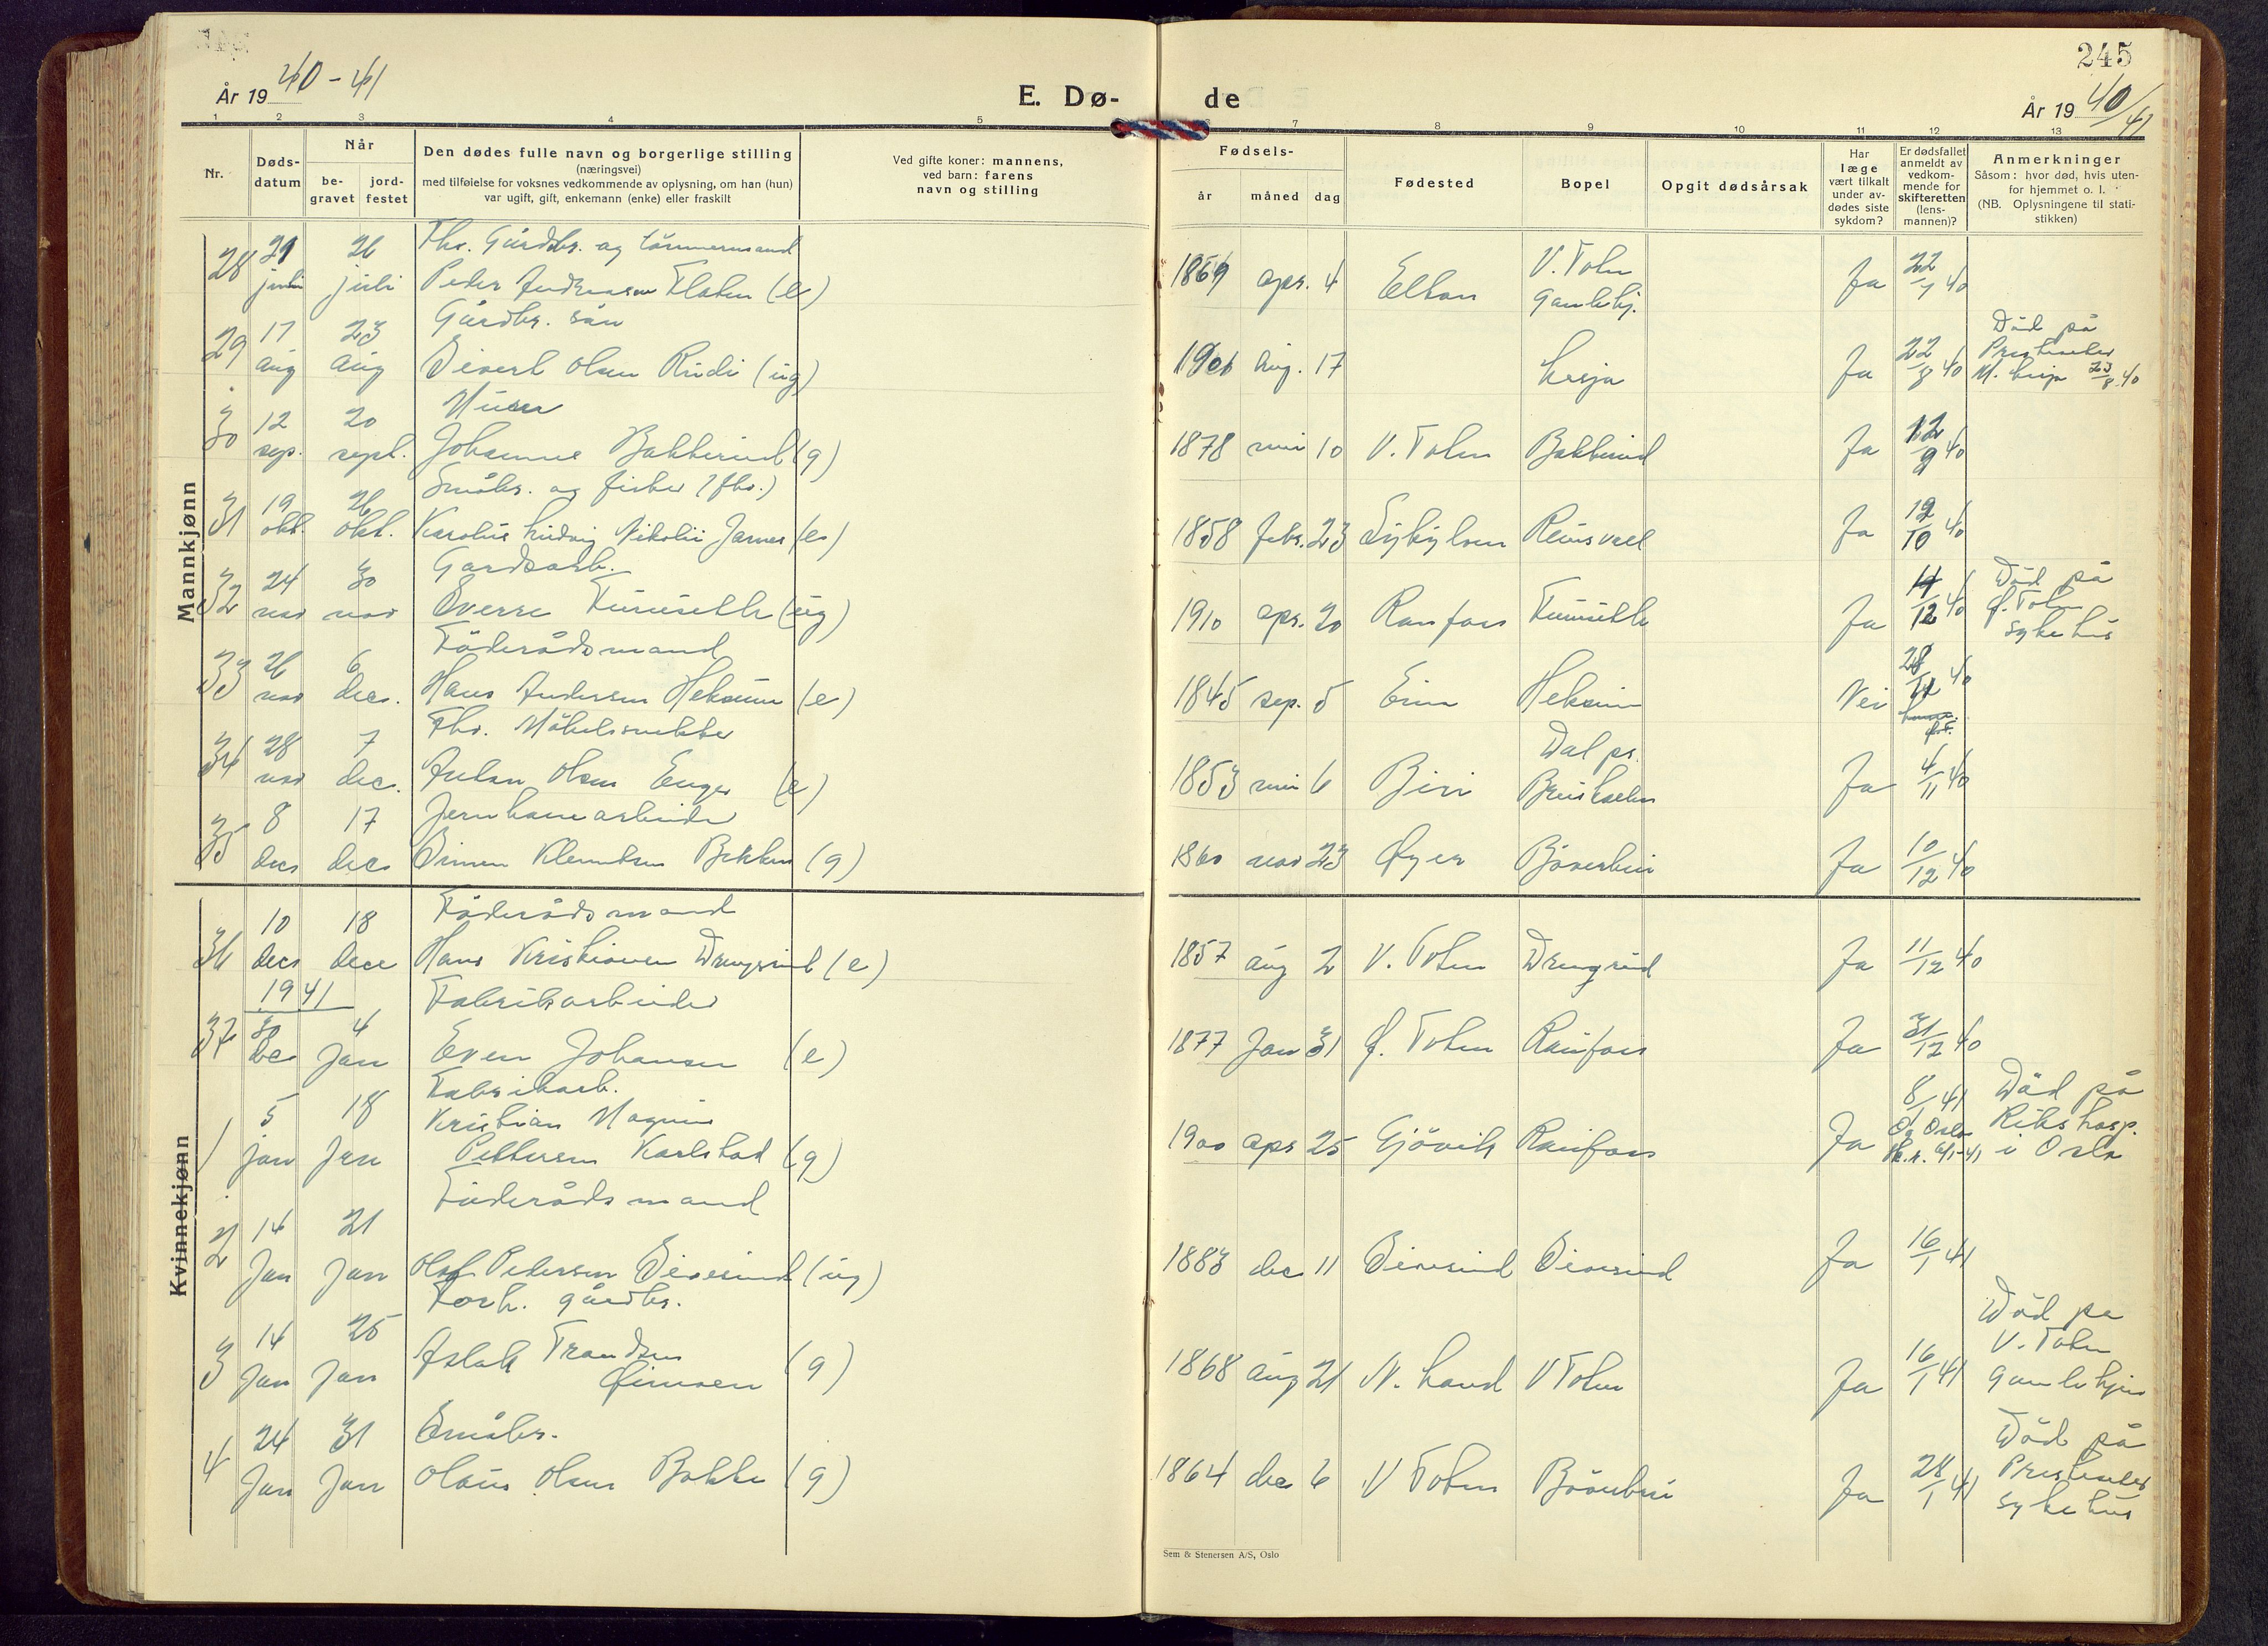 245
År 1940-41
E. Dø-
de
År 1940/41
1 2 3 4 5 6 7 8 9 10 11 12 13
Nr.
Døds-
datum
Når
be-
gravet
jord-
festet
Den dødes fulle navn og borgerlige stilling
(næringsvei)
med tilføielse for voksnes vedkommende av oplysning, om han (hun)
var ugift, gift, enkemann (enke) eller fraskilt
Ved gifte koner: mannens,
ved barn: farens
navn og stilling
Fødsels-
år måned dag
Fødested
Bopel
Opgit dødsårsak
Har
læge
vært tilkalt
under av-
dødes siste
sykdom?
Er dødsfallet
anmeldt av
vedkom-
mende for
skifteretten
(lens-
mannen)?
Anmerkninger
Såsom: hvor død, hvis uten-
for hjemmet o. l.
(NB. Oplysningene til stati-
stikken)
Mannkjønn
Fhv. Gårdbr. og tömmermand
28 21 juli 26 juli Peder Andreassen Flaten (e) 1869 apr. 4 V. Toten Gamlehj. Ja 22/7 40
Gårdbr. sön
29 17 aug 23 aug Sivert Olsen Rudi (ug) 1906 aug. 17 Lesja Ja 22/8 40 Död på
Presteseter
23/8 40
Murer
30 12 sep. 20 sept. Johannes Bakkerud (g) 1878 mai 10 V. Toten Bakkerud Ja 12/9 40
Småbr. og fisker (fhv.)
31 19 okt. 26 okt. Karolius Ludvig Nikolai (e) 1858 febr. 23 Reinsvoll Ja 19/10 40
Gardsarb.
32 24 nov 30 nov Sverre Furuseth (ug) 1910 apr. 20 Raufoss Furuseth Ja 12 40 Död på
Ø. Toten
sykehus
Föderådsmand
33 26 nov 6 dec. Hans Andersen Heksum (e) 1845 sep. 5 Heksum Nei 28/11 40
Fhv. Möbelsnekker
34 28 nov 7 dec. Anton Olsen Enger (e) 1853 mai 6 Biri Dal pr. Ja 4/11 40
Jernbanearbeider
35 8 dec 17 dec Simen Klemetsen Bekken (g) 1860 nov 23 Øyer Böverbru Ja 10/12 40
Föderådsmand
36 10 dec 18 dec Hans Kristiansen Drengsrud (e) 1857 aug 2 V. Toten Drengsrud Ja 11/12 40
1941
Fabrikarbeider
37 30 dec 4 Jan Even Johansen (e) 1877 Jan 31 Ø. Toten Raufoss Ja 31/12 40
Kvinnekjønn
Fabrikarb.
Kristian Magnus
1 5 jan 18 Jan Pettersen Karlstad (g) 1900 apr 25 Gjövik Raufoss Ja 8/1 41 Död på
Rikshosp.
i Oslo
Föderådsmand
2 14 Jan 21 Jan Olaf Pedersen Sivesind (ug) 1883 dec 11 Sivesind Sivesind Ja 16/1 41
Forh. gårdbr.
3 14 Jan 25 Jan Aslak Trondsen (g) 1868 aug 21 N. Land V Toten Ja 16/1 41 Död på
V. Toten
gamlehjem
Småbr.
4 24 Jan 31 Jan Olaus Olsen Bakke (g) 1864 dec 6 V Toten Böverbru Ja 28/1 41 Död på
Presteseter
sykehus
Sem & Stenersen A/S, Oslo